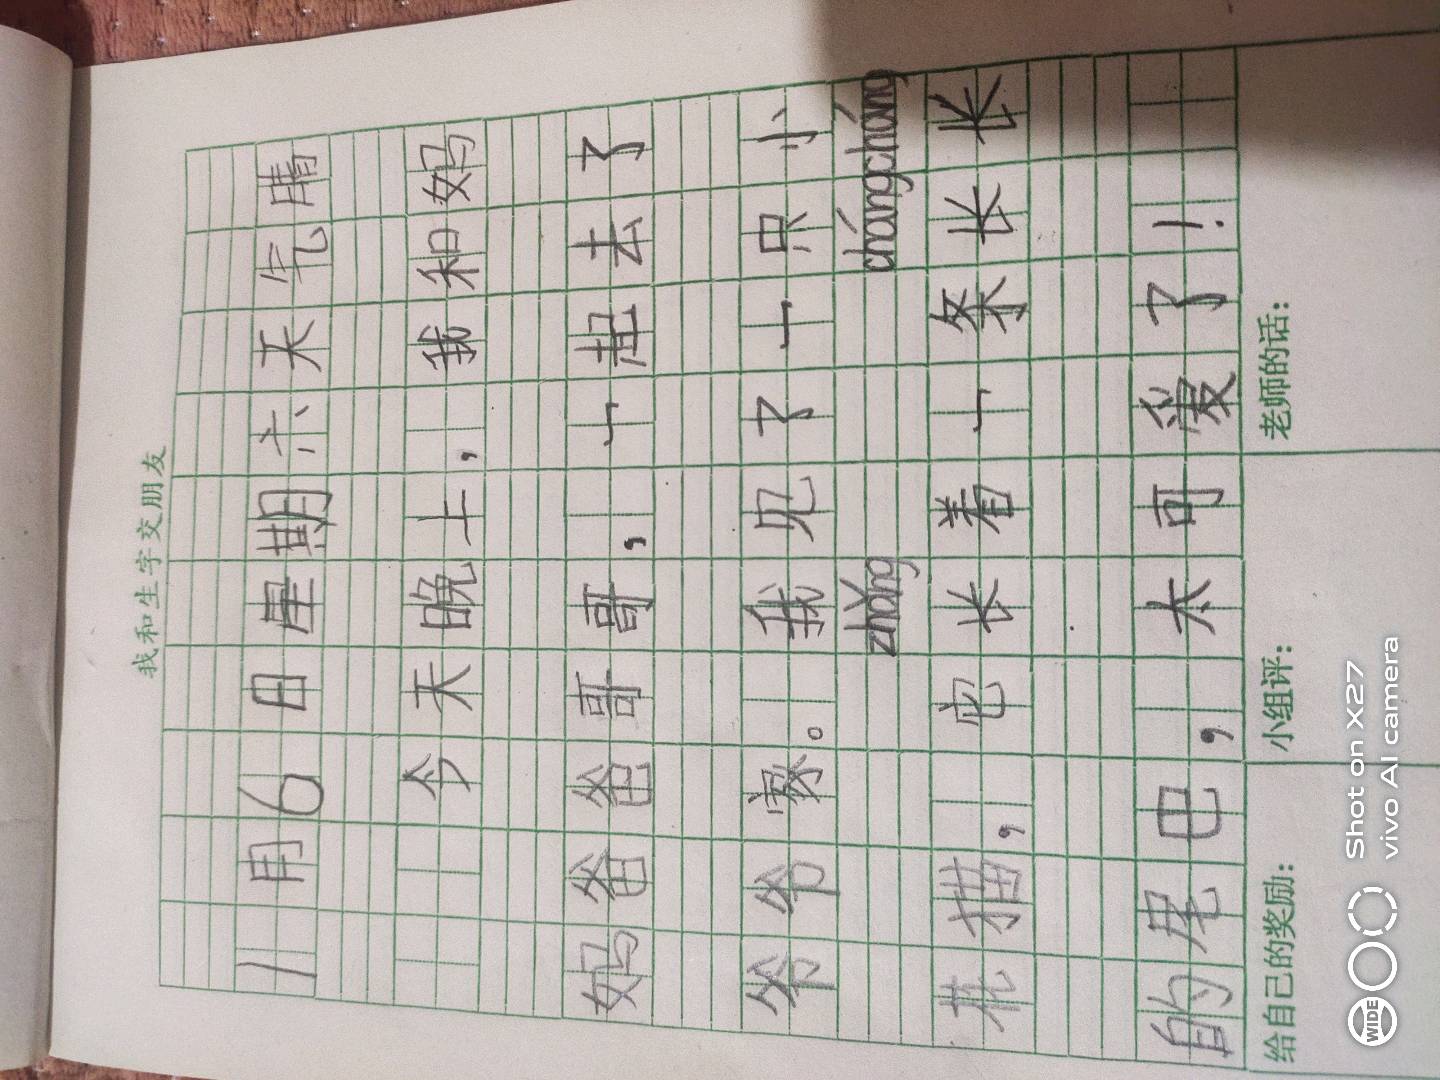 我和生字交朋友
1月6日星期六天气晴
今天晚上，我和妈
妈爸爸哥哥，一起去了
爷爷家。我见了一只小
zhǎng chángcháng
花猫，它长着一条长长
的尾巴，太可爱了！
给自己的奖励： 小组评： 老师的话：
WIDE
Shot on X27
vivo AI camera